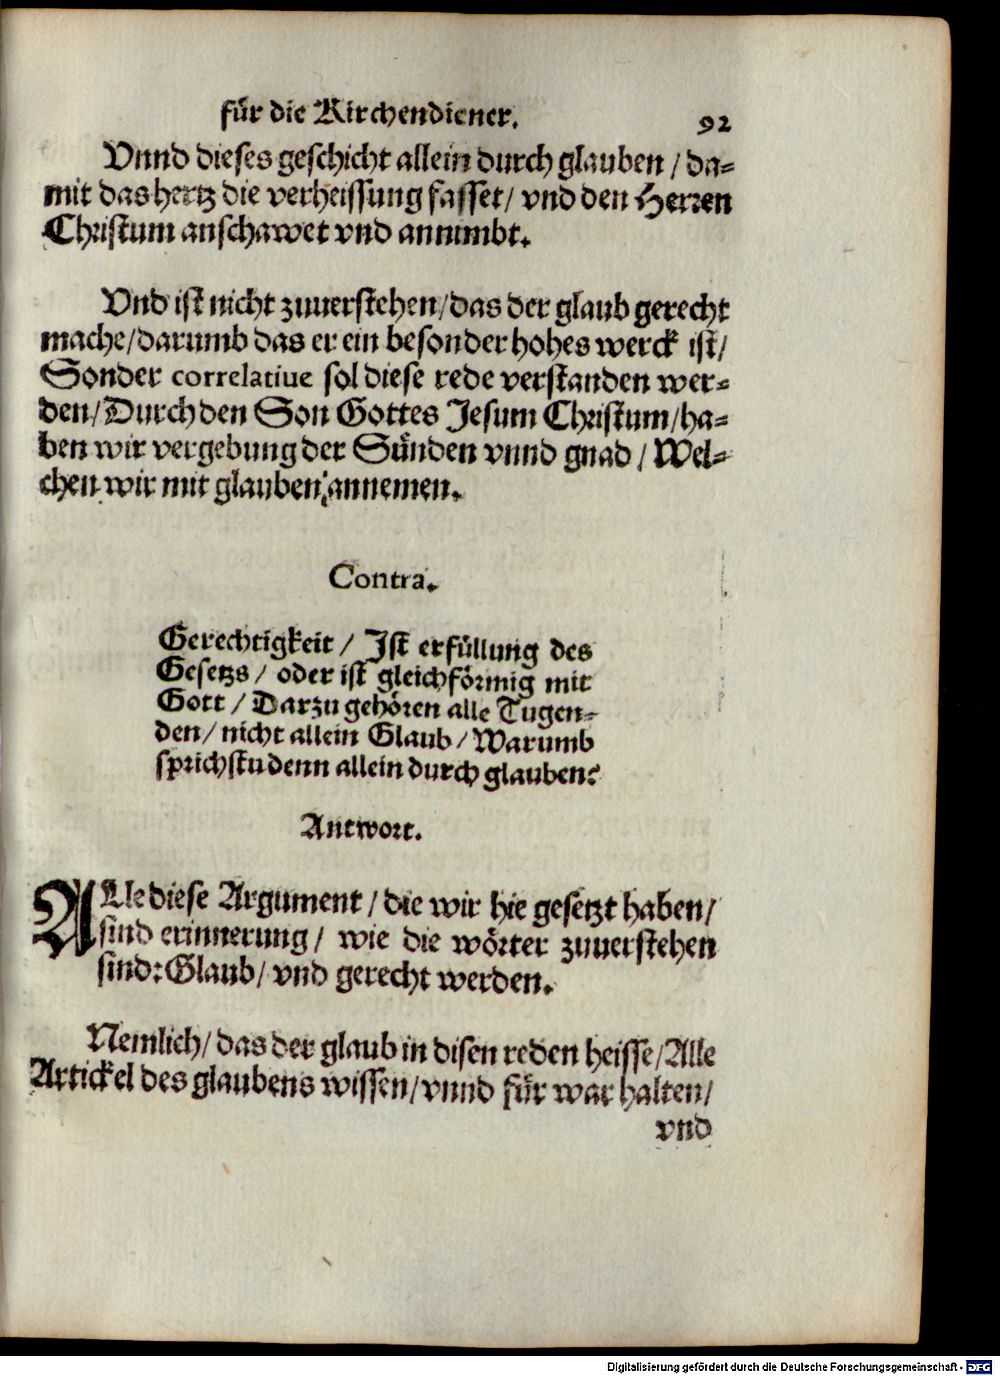 für die Kirchendiener.
92
Vnnd dieses geschicht allein durch glauben / da-
mit das hertz die verheissung fasset / vnd den Herren
Christum anschawet vnd annimbt.
Vnd ist nicht zuuerstehen / das der glaub gerecht
mache / darumb das er ein besonder hohes werck ist /
Sonder correlatiue sol diese rede verstanden wer-
den / Durch den Son Gottes Jesum Christum / ha-
ben wir vergebung der Sünden vnnd gnad / Wel-
chen wir mit glauben annemen.
Contra.
Gerechtigkeit / Ist erfüllung des
Gesetzs / oder ist gleichförmig mit
Gott / Darzu gehören alle Tugen-
den / nicht allein Glaub / Warumb
sprichstu denn allein durch glauben?
Antwort.
ALle diese Argument / die wir hie gesetzt haben /
sind erinnerung / wie die wörter zuuerstehen
sind: Glaub / vnd gerecht werden.
Nemlich / das der glaub in disen reden heisse / Alle
Artickel des glaubens wissen / vnnd für war halten /
vnd
Digitalisierung gefördert durch die Deutsche Forschungsgemeinschaft - DFG